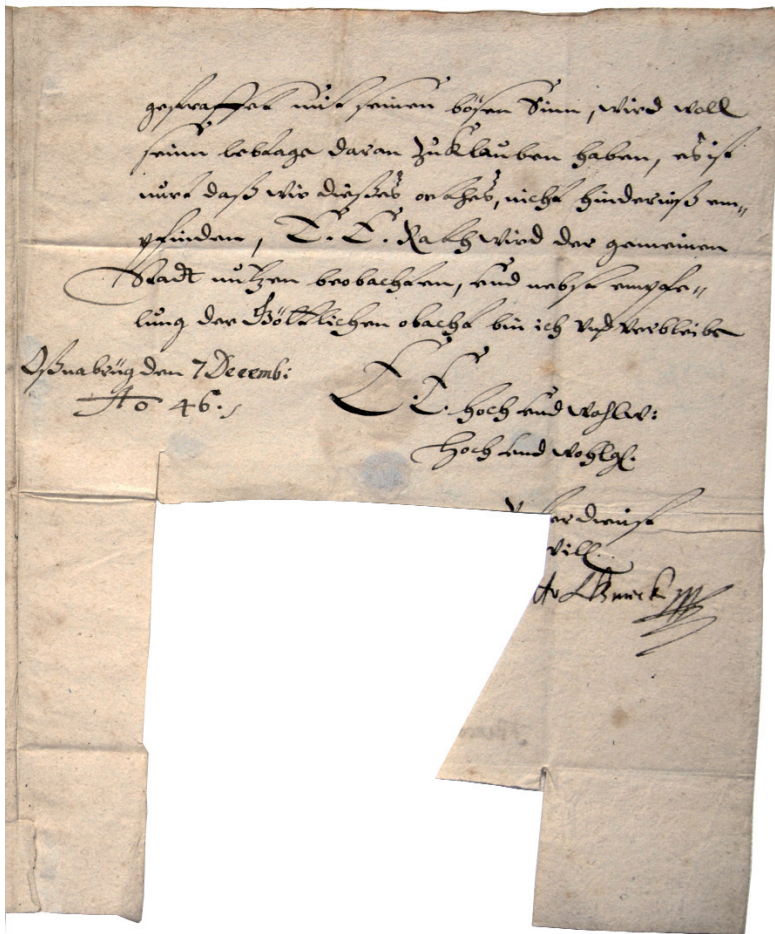 gestraffet mit seinen bösen Sinn, wird woll
seine lebtage daran zuklauben haben, es ist
nurt daß wir dießes orthes, nicht hinderniß em„
pfinden, E. E. Rath wird der gemeinen
Stadt nutzen beobachten, und nebst empfe„
lung der Göttlichen obacht bin ich und verbleibe
Oßnabrüg den 7 Decemb:
Ao 46./
E. E. hoch und wohlw:
hoch und wohlgl.
dienst
will